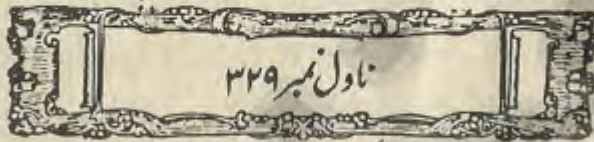 ناول نمبر ۳۲۹